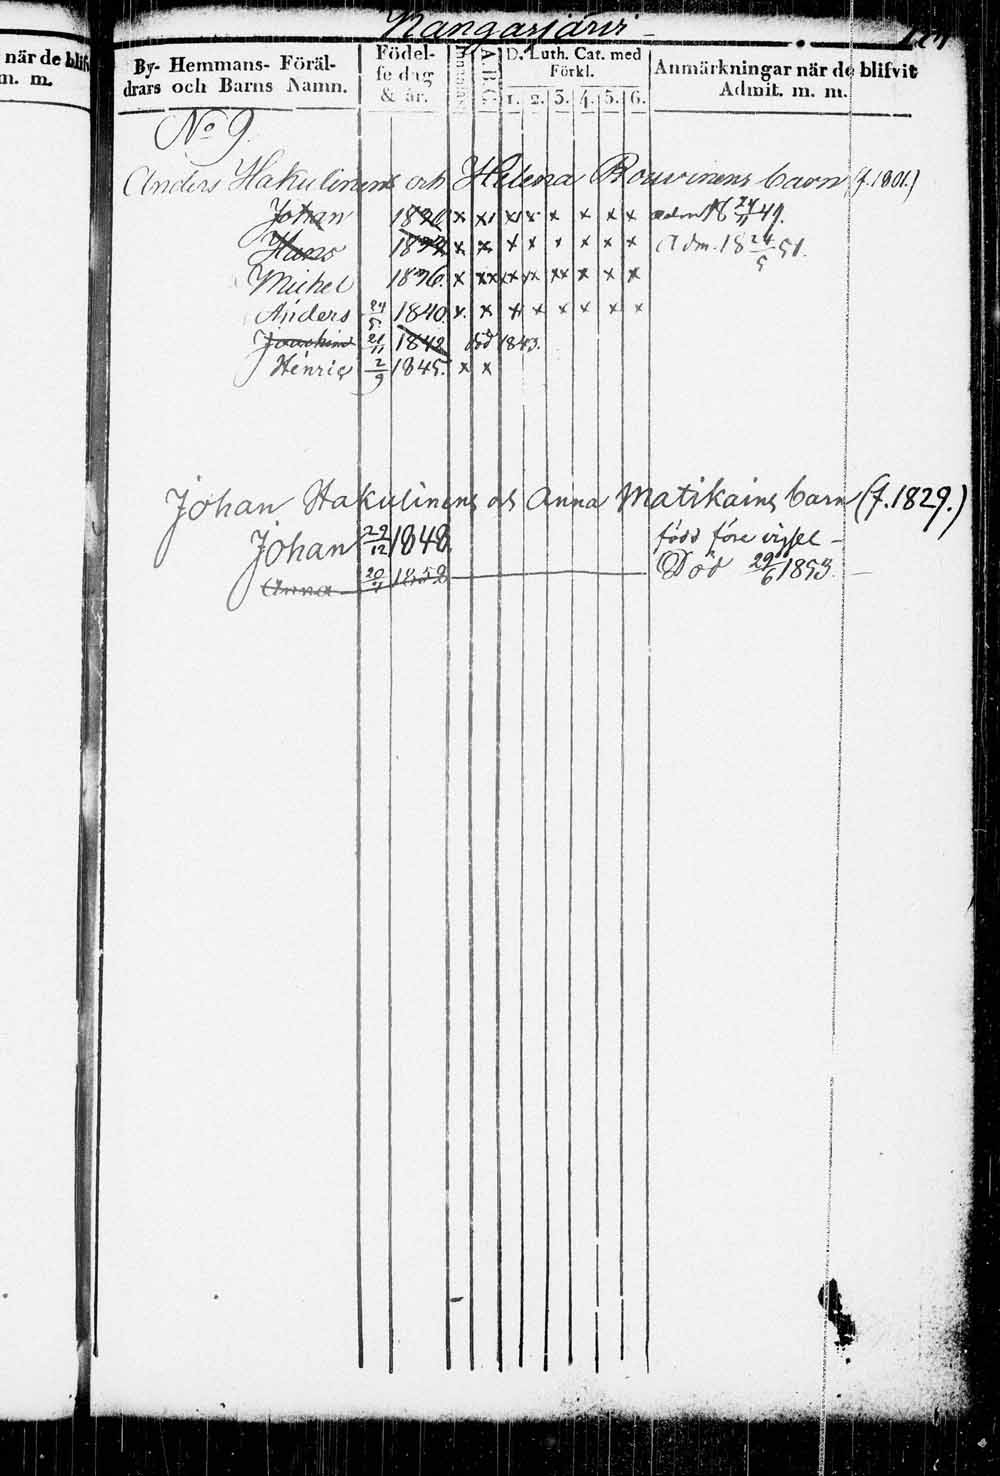 när de blifv
m. m.
Kangasjärvi
By- Hemmans- Föräl-
drars och Barns Namn.
Födel-
se dag
& år.
A.B.C.
D. Luth. Cat. med
Förkl.
1. 2. 3. 4. 5. 6.
Anmärkningar när de blifvit
Admit. m. m.
No 9.
Anders Hakulinens och Helena Rouvinens barn (f. 1801.)
Johan 1830 x x x x x x x x adm 18 24/11 49.
Hans x x x x x x x x Adm. 18 24/5 51.
Michel 1836. x xx xx xx xx x x x
Anders 24/5 1840. x x x x x x x x
Joachim 21/11 1842 död 1843.
Henric 2/9 1845. x x
Johan Hakulinens och Anna Matikains barn (f. 1829.)
Johan 29/12 1848. född före vigsel -
Anna 20/7 1852 Död 29/6 1853. -